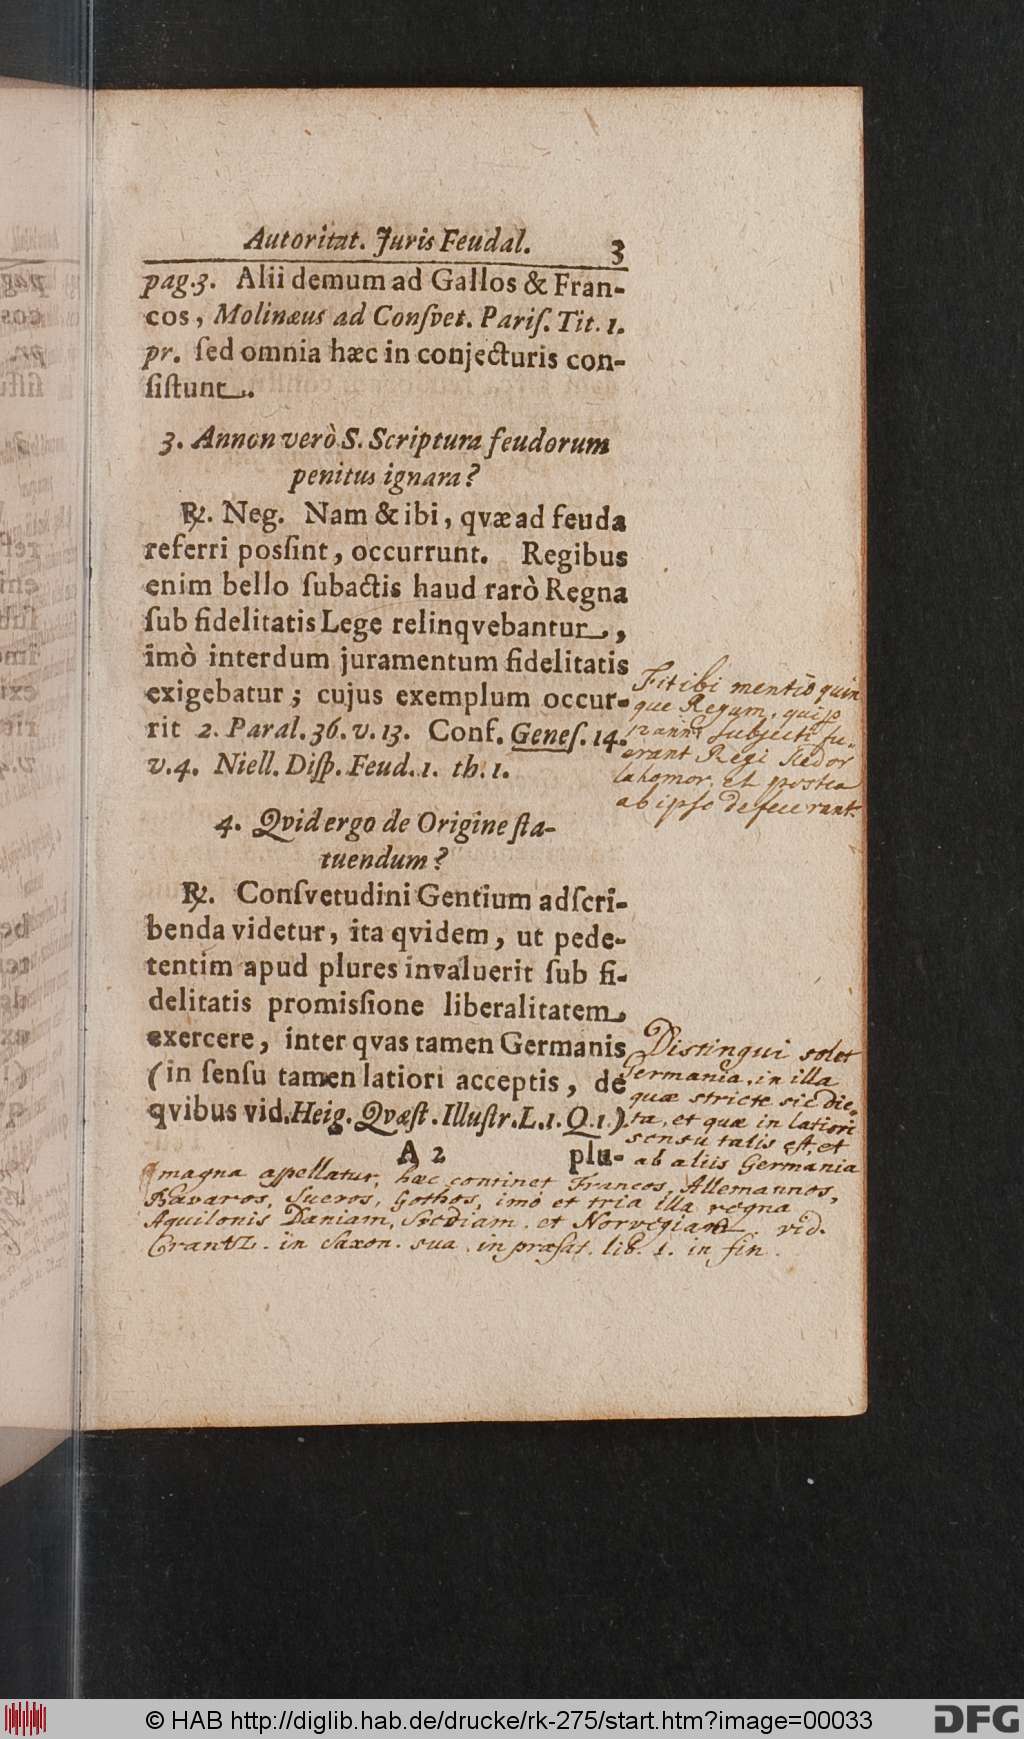 Autoritat. Juris Feudal. 3
pag. 3. Alii demum ad Gallos & Fran-
cos, Molinæus ad Conſvet. Pariſ. Tit. 1.
pr. ſed omnia hæc in conjecturis con-
ſiſtunt.
3. Annon verò S. Scriptura feudorum
penitus ignara?
℞. Neg. Nam & ibi, qvæ ad feuda
referri posſint, occurrunt. Regibus
enim bello ſubactis haud rarò Regna
ſub fidelitatis Lege relinqvebantur,
imò interdum juramentum fidelitatis
exigebatur; cujus exemplum occur-
rit 2. Paral. 36. v. 13. Conf. Geneſ. 14.
v. 4. Niell. Diſp. Feud. 1. th. 1.
Fit ibi mentio quin
que Regum, qui jo
12 annis subjecti fu-
erant Regi Kedor
lahomor, et postea
ab ipso defecerant.
4. Qvid ergo de Origine ſta-
tuendum?
℞. Conſvetudini Gentium adſcri-
benda videtur, ita qvidem, ut pede-
tentim apud plures invaluerit ſub fi-
delitatis promisſione liberalitatem
exercere, inter qvas tamen Germanis
(in ſenſu tamen latiori acceptis, de
qvibus vid. Heig. Qvæſt. Illuſtr. L. 1. Q. 1.)
A 2 plu-
Distingui solet
Germania, in illa
quæ stricte sic dic-
ta, et quæ in latiori
sensu talis est, et
ab aliis Germania
magna apellatur, hæc continet Francos, Allemannos,
Bavaros, Suevos, Gothos, imò et tria illa regna
Aquilonis Daniam, Svediam, et Norvegiam. vid.
Crantz. in Saxon. sua, in præfat. lib. 1. in fin.
© HAB http://diglib.hab.de/drucke/rk-275/start.htm?image=00033
DFG